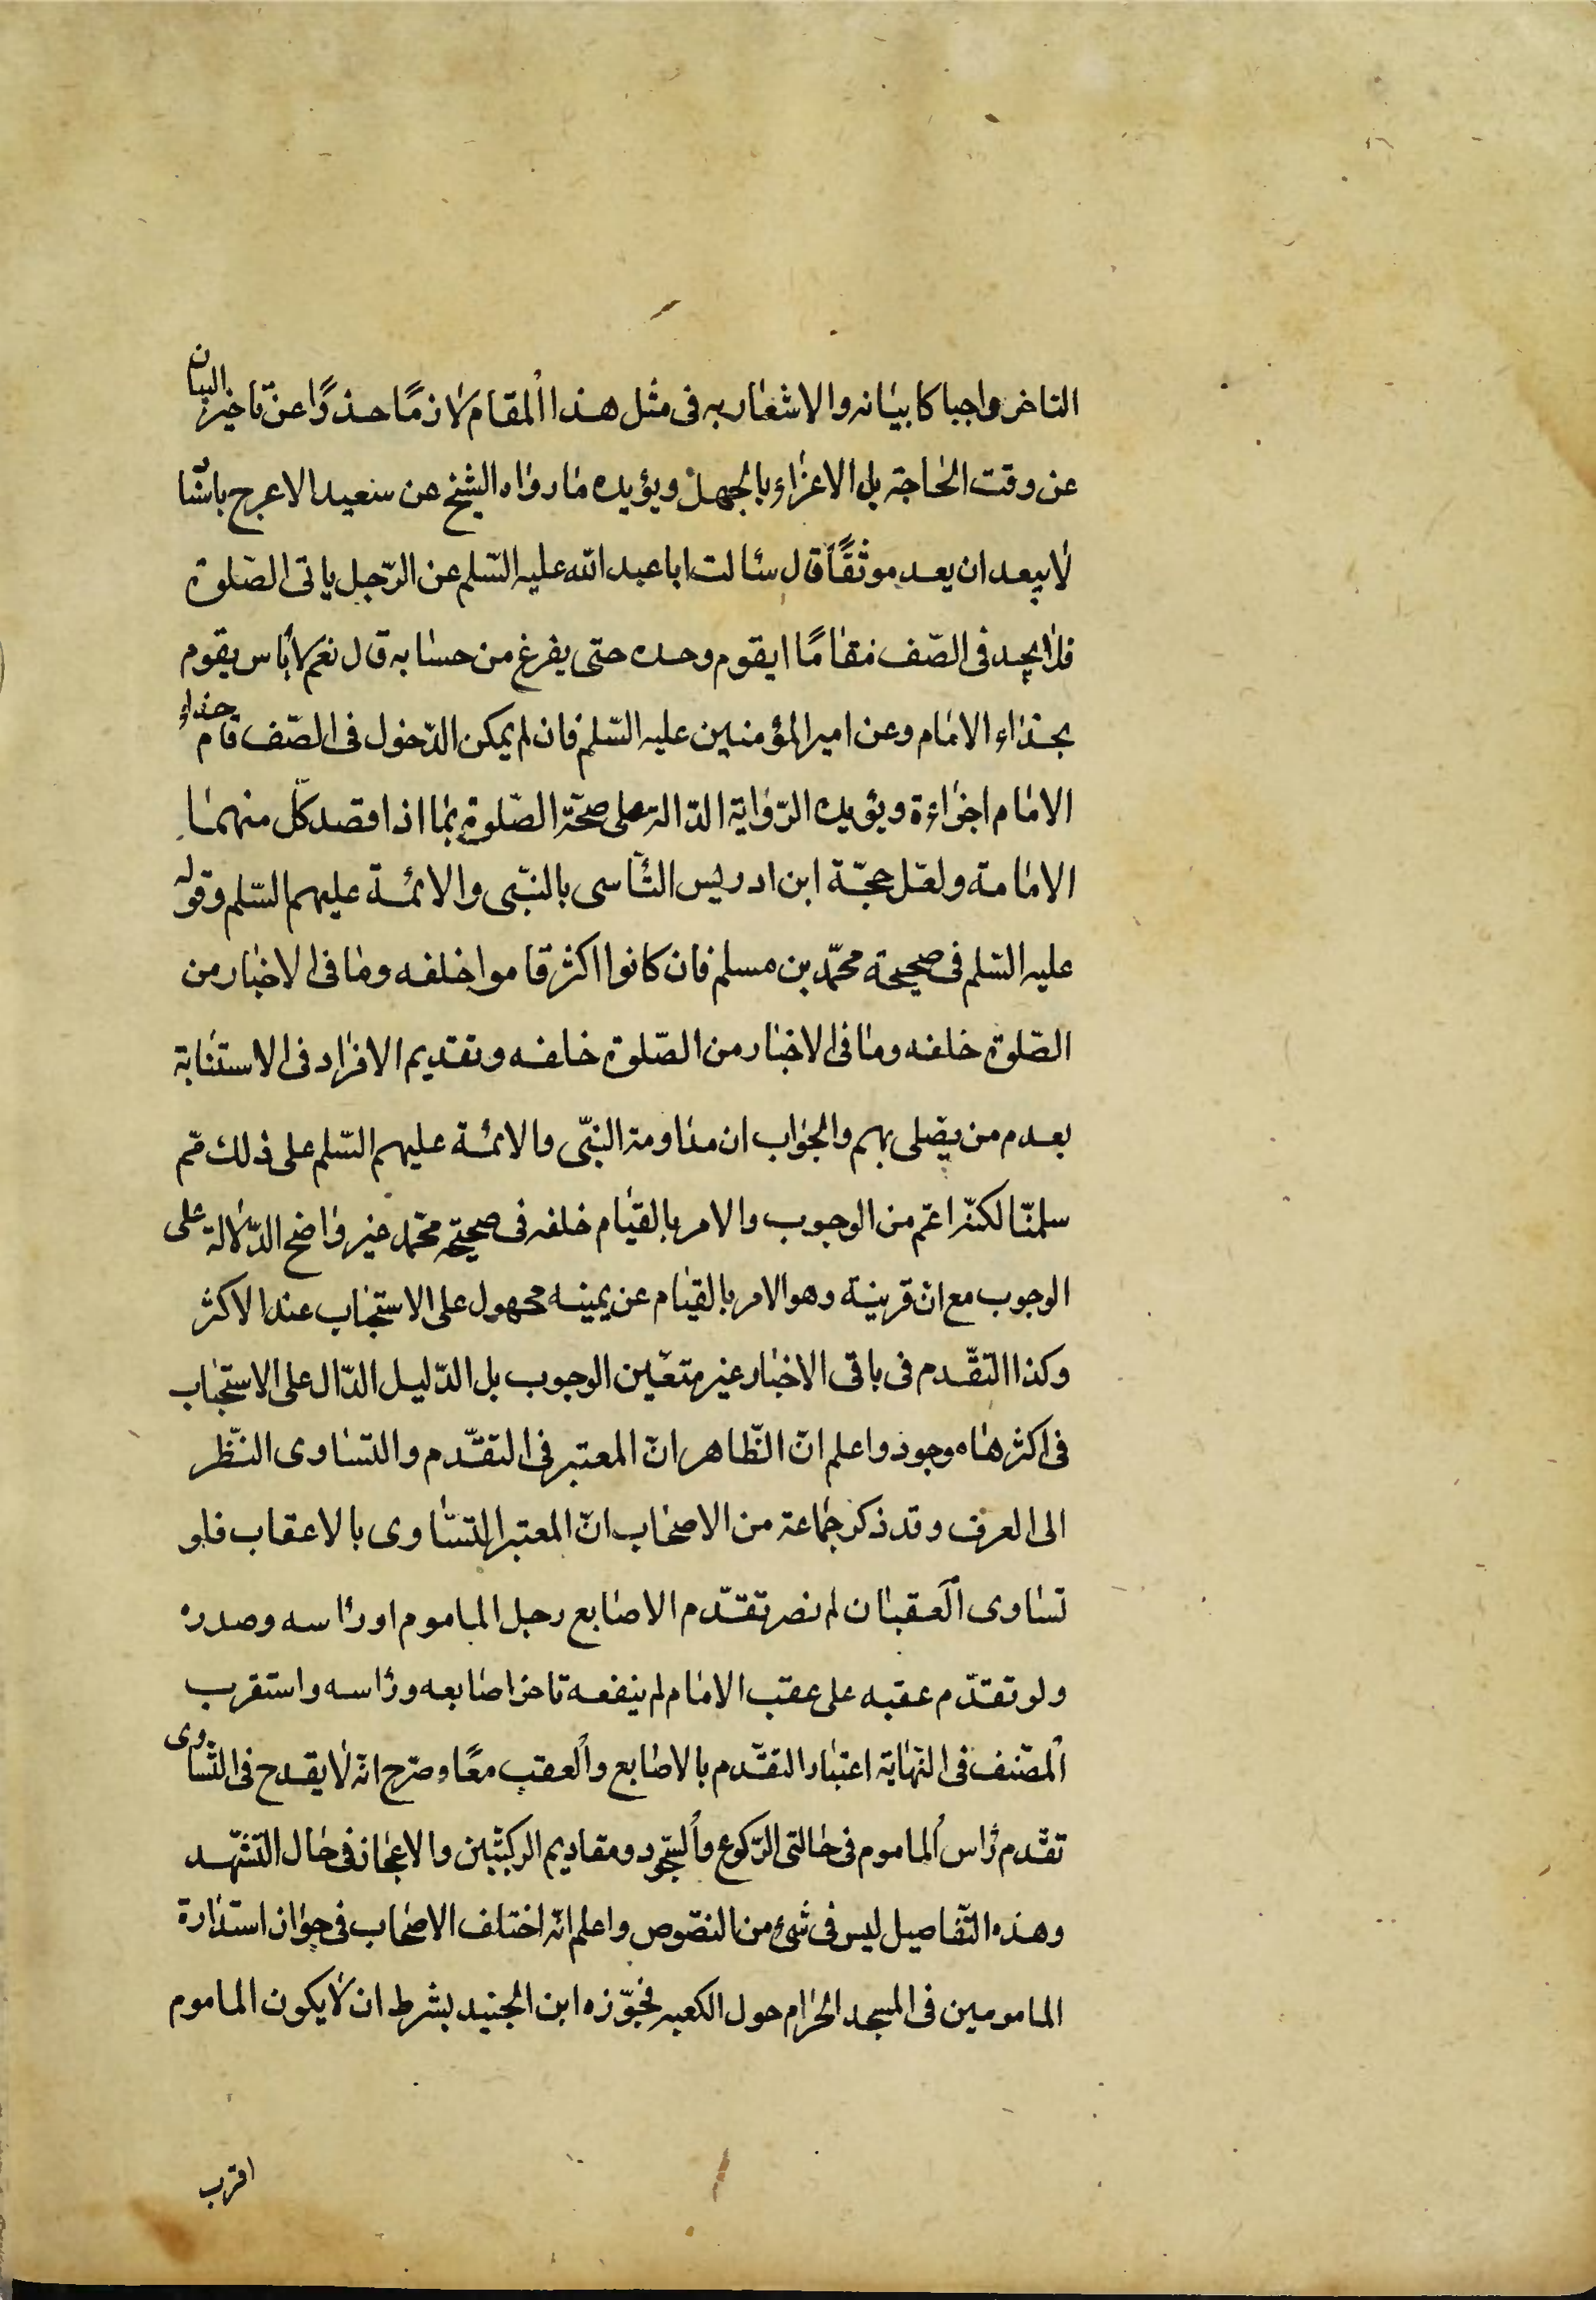 التاخر واجبا كا بيانه والاشعار به فى مثل هذا المقام لازمًا حذرًا عن تاخير البيان
عن وقت الحاجة بل الاغراء بالجهل ويؤيده ما رواه الشيخ عن سعيد الاعرج باسنا
لا يبعد ان يعد موثقًا قال سئالت ابا عبد الله عليه السّلم عن الرّجل ياتى الصّلوة
فلا يجد فى الصّف مقامًا ايقوم وحده حتى يفرغ من حسابه قال نعم لا بأس يقوم
بحذاء الامام وعن امير المؤمنين عليه السّلم فان لم يمكن الدّخول فى الصّف قام حذاء
الامام اجزاءة ويؤيده الرّواية الدّالة على صحّة الصّلوة بما اذا قصد كلّ منهما
الامامة ولعّل حجّة ابن ادريس التّأسى بالنبّى والائمة عليهم السّلم وقوله
عليه السّلم فى صحيحة محمّد بن مسلم فان كانوا اكثر قاموا خلفه وما فى الاخبار من
الصّلوة خلفه وما فى الاخبار من الصّلوة خلفه وتقديم الافراد فى الاستنابة
بعدم من يصّلى بهم والجواب ان مداومة النبّى والائمة عليهم السّلم على ذلك ثم
سلمنّا لكنّه اعم من الوجوب والامر بالقيام خلفه فى صحيحة محمّد غير واضح الدّلالة على
الوجوب مع انّ قرينة وهو الامر بالقيام عن يمينه محمول على الاستحباب عند الاكثر
وكذا التقّدم فى باقى الاخبار غير متعّين الوجوب بل الدّليل الدّال على الاستحباب
فى اكثرها موجود واعلم انّ الظّاهر انّ المعتبر فى التقدّم والتساوى النّظر
الى العرف وقد ذكر جماعة من الاصحاب انّ المعتبر التسّاوى بالاعقاب فلو
تساوى العقبان لم نصر تقدّم الاصابع رجل الماموم او رأسه وصدره
ولو تقدّم عقبه على عقب الامام لم ينفعه تاخر اصابعه ورأسه واستقرب
المصّنف فى النّهاية اعتبار التقّدم بالاصابع والعقب معًا وصّرح انّه لا يقدح فى التّساوى
تقّدم رأس الماموم فى حالتى الرّكوع والسّجود ومقاديم الركبتّين والاعجاز فى حال التشهّد
وهذه التّفاصيل ليس فى شئ من النصّوص واعلم انّه اختلف الاصحاب فى جواز استدارة
المامومين فى المسجد الحرام حول الكعبه فجوّزه ابن الجنيد بشرط ان لا يكون الماموم
اقرب